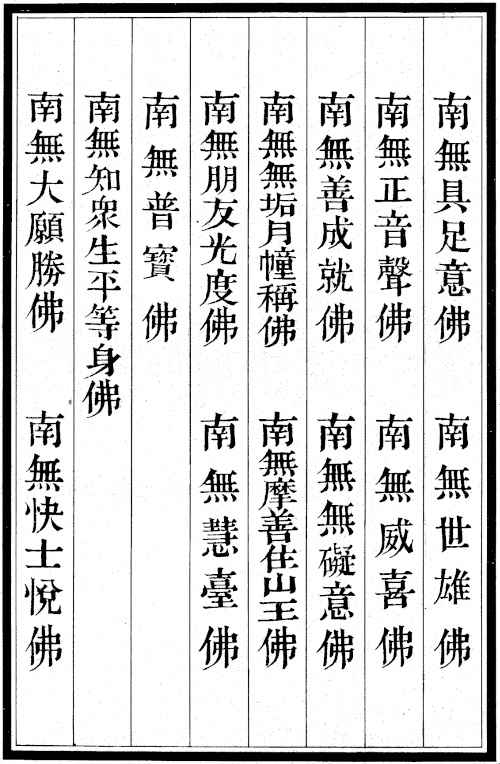 南無具足意佛　南無世雄佛
南無正音聲佛　南無威喜佛
南無善成就佛　南無無礙意佛
南無無垢月幢稱佛　南無摩善住山王佛
南無朋友光度佛　南無慧臺佛
南無普寶佛
南無知衆生平等身佛
南無大願勝佛　南無快士悅佛